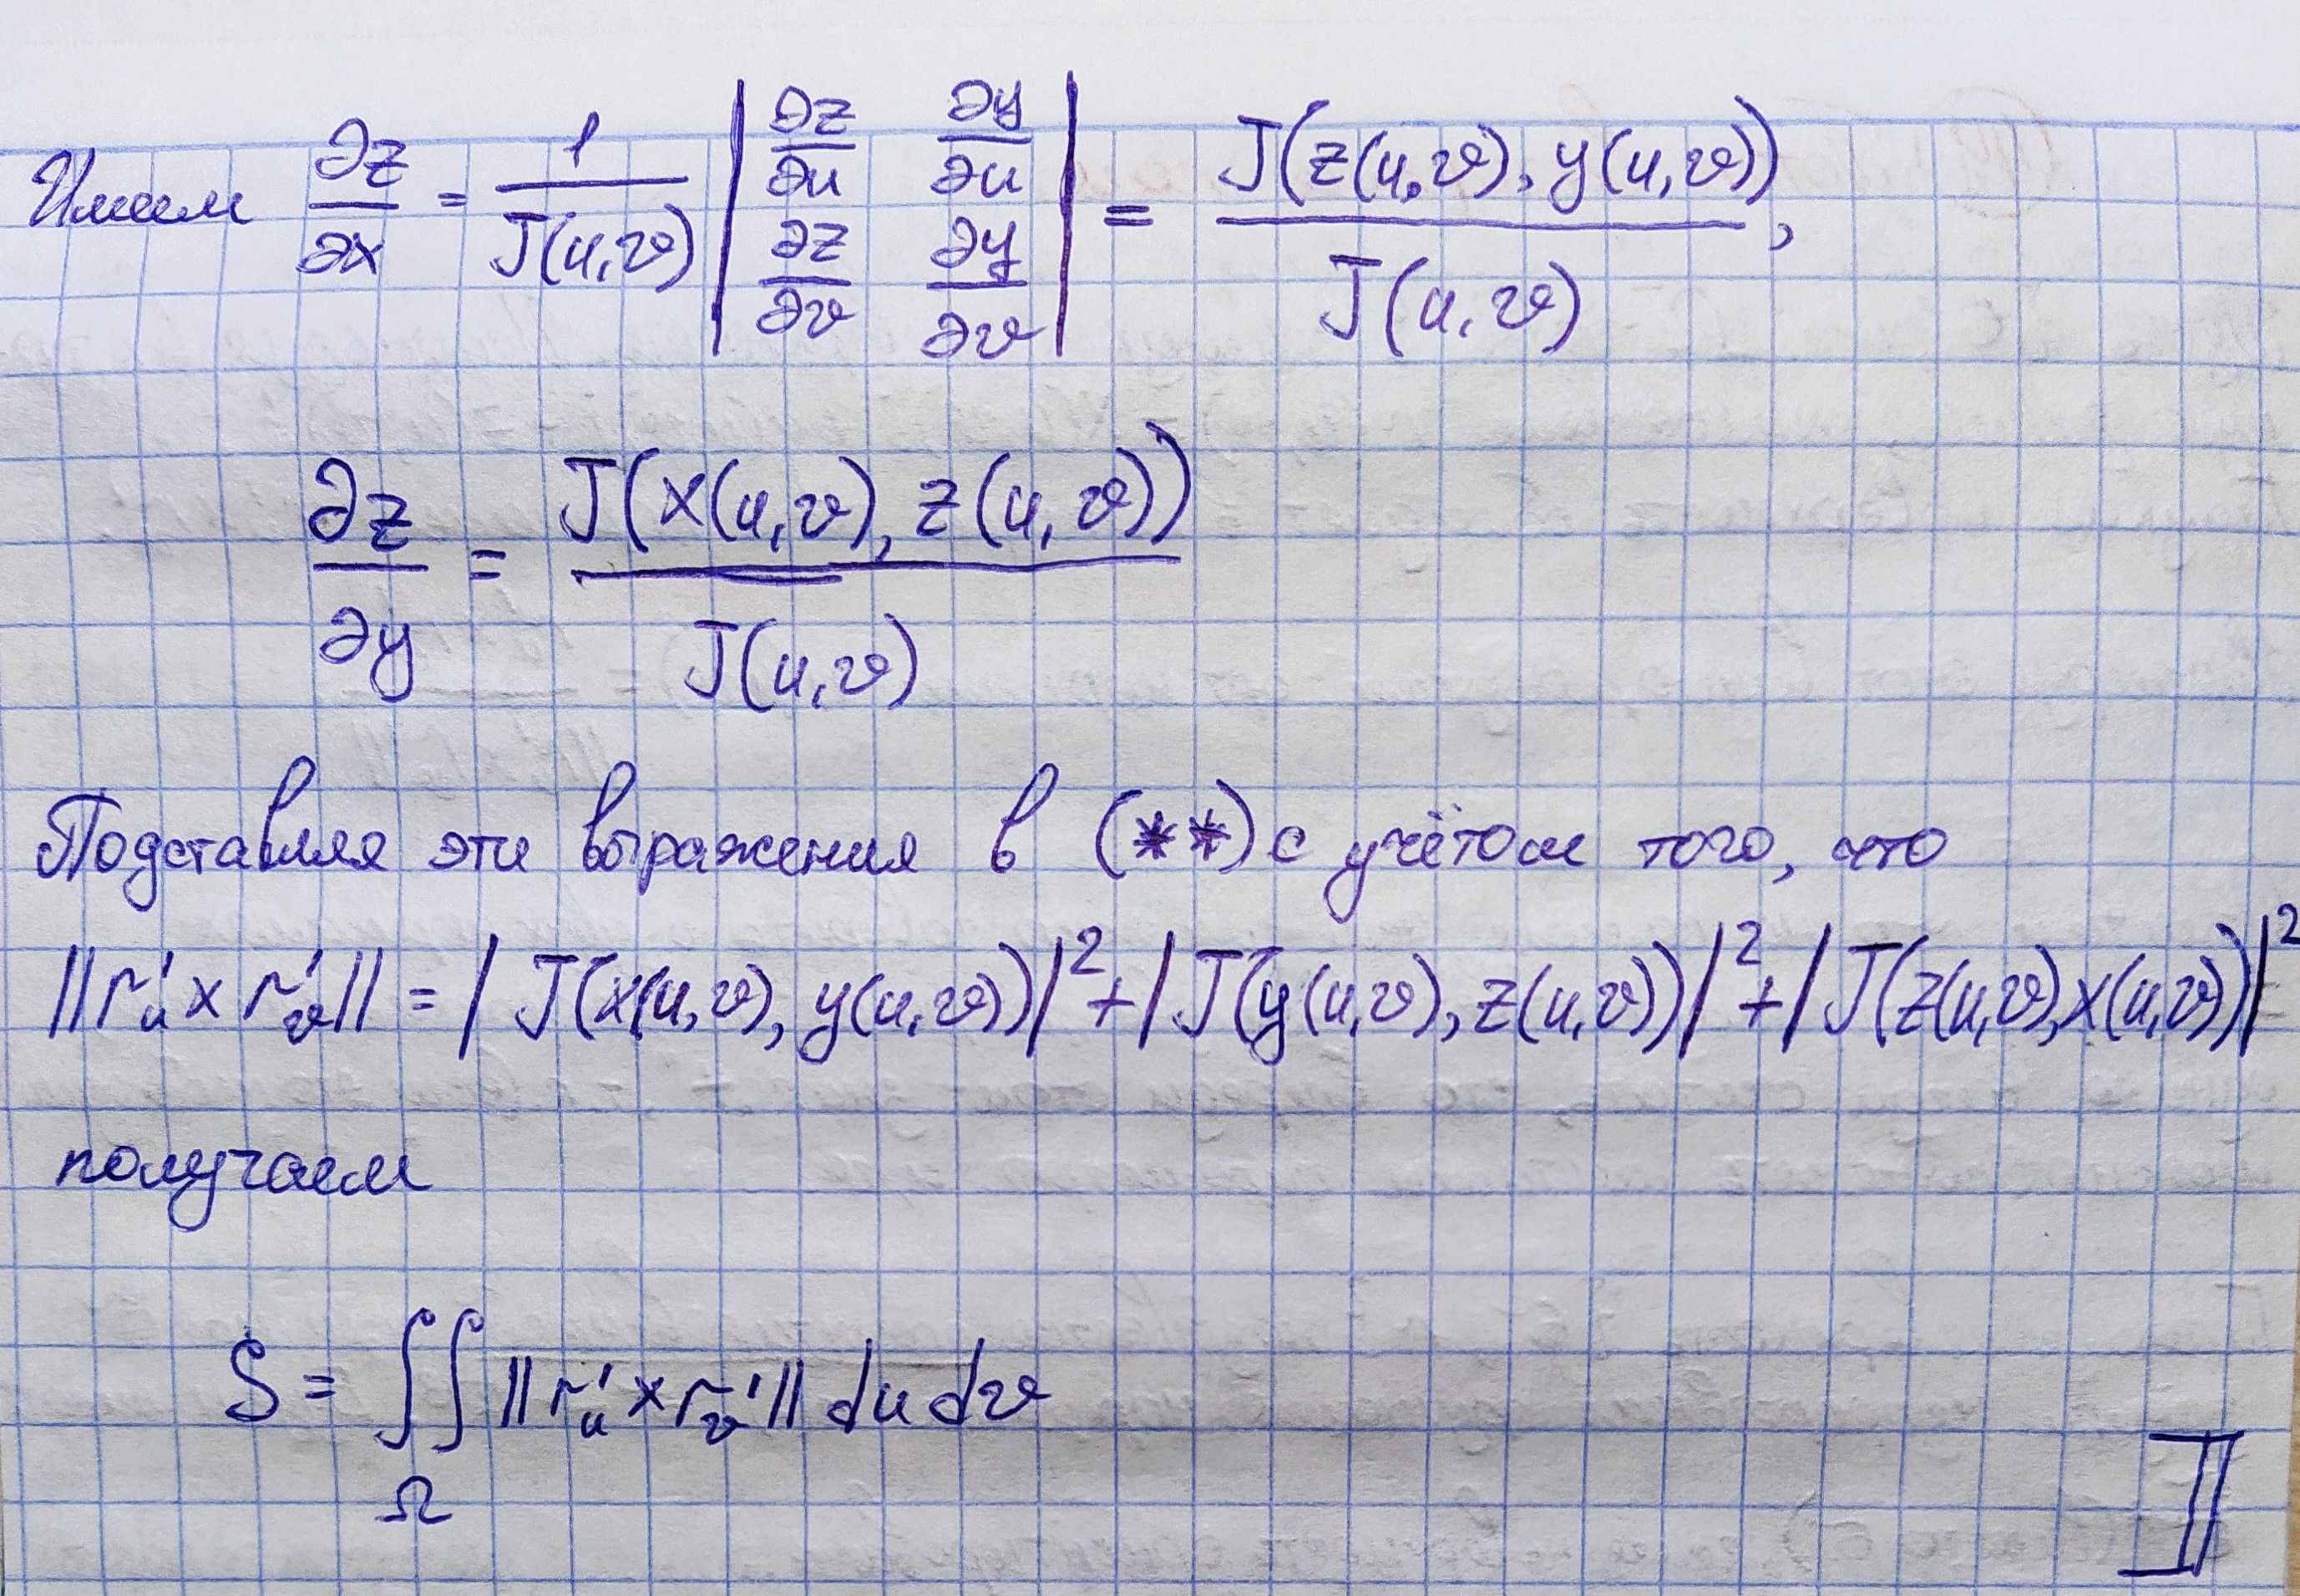 Имеем ∂z/∂x = 1/J(u,v) | ∂z/∂u ∂y/∂u ; ∂z/∂v ∂y/∂v | = J(z(u,v), y(u,v))/J(u,v),
∂z/∂y = J(x(u,v), z(u,v))/J(u,v)
Подставляя эти выражения в (**) с учётом того, что
||r'ᵤ × r'ᵥ|| = |J(x(u,v), y(u,v))|² + |J(y(u,v), z(u,v))|² + |J(z(u,v), x(u,v))|²
получаем
S = ∬_Ω ||r'ᵤ × r'ᵥ|| du dv